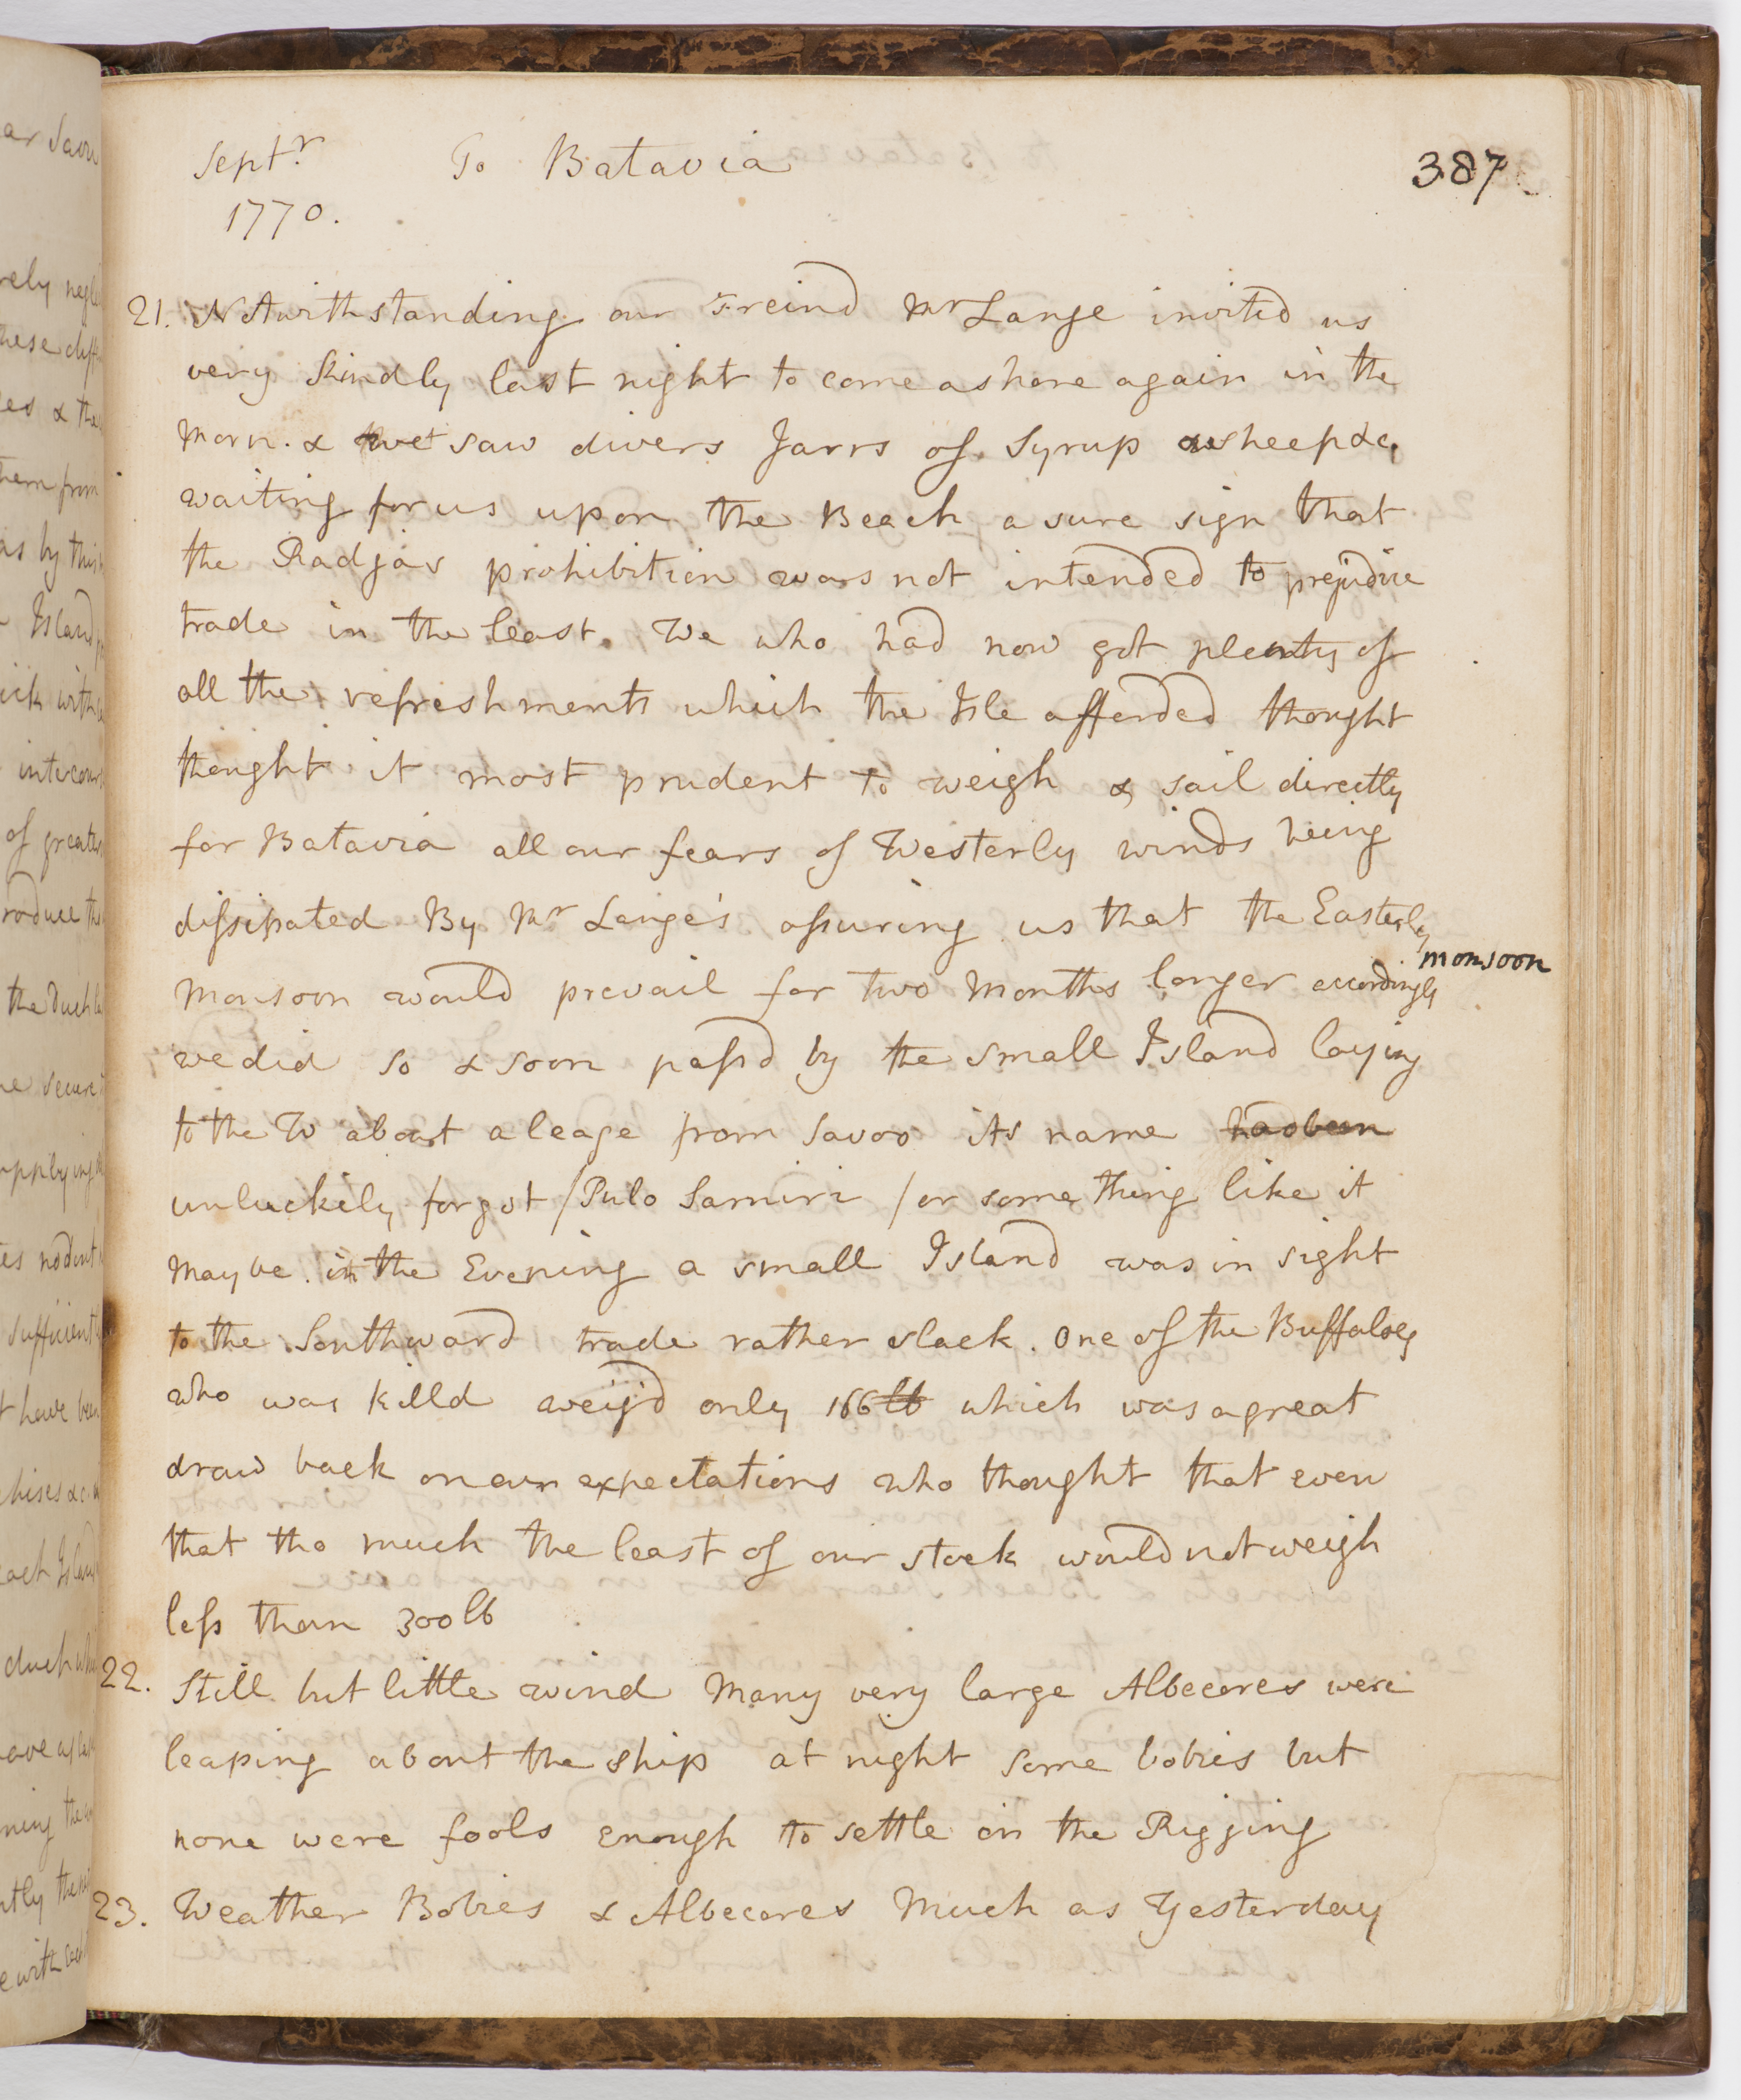 Septr. To Batavia 387
1770.
21. Notwithstanding our Freind Mr Lange invited us
very kindly last night to come ashore again in the
morn. & we saw divers Jarrs of Syrup sheep &c.
waiting for us upon the Beach a sure sign that
the Radja's prohibition was not intended to prejudice
trade in the least. We who had now got plenty of
all the refreshments which the Isle afforded thought
thought it most prudent to weigh & sail directly
for Batavia all our fears of Westerly winds being
dissipated By Mr Lange's assuring us that the Easterly
monsoon
Monsoon would prevail for two Months longer accordingly
we did so & soon pass'd by the small Island laying
to the W about a leage from Savoo its name has been
unluckily forgot /Pulo Samiri / or some thing like it
may be. in the Evening a small Island was in sight
to the Southward trade rather slack. One of the Buffaloes
who was killd weig'd only 166 lb which was a great
draw back on our expectations who thought that even
that tho much the least of our stock would not weigh
less than 300 lb
22. Still but little wind Many very large Albecores were
leaping about the ship at night some bobies but
none were fools enough to settle in the Rigging
23. Weather Bobies & Albecores Much as Yesterday
ar Savu
these diff
es & the
hem from
as by this
Island
of greater
the Duch
ne secure
sufficient
have been
each Island
duch
e with